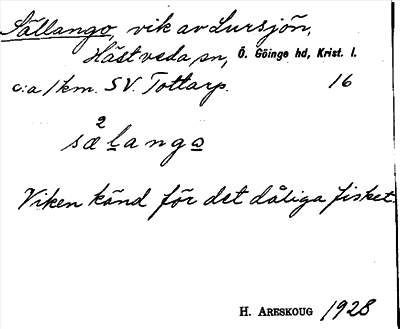 Sällango, vik av Lursjön,
Hästveda sn, Ö. Göinge hd, Krist. l.
c:a 1 km. SV. Tottarp. 16
2
sælango
Viken känd för det dåliga fisket.
H. ARESKOUG 1928